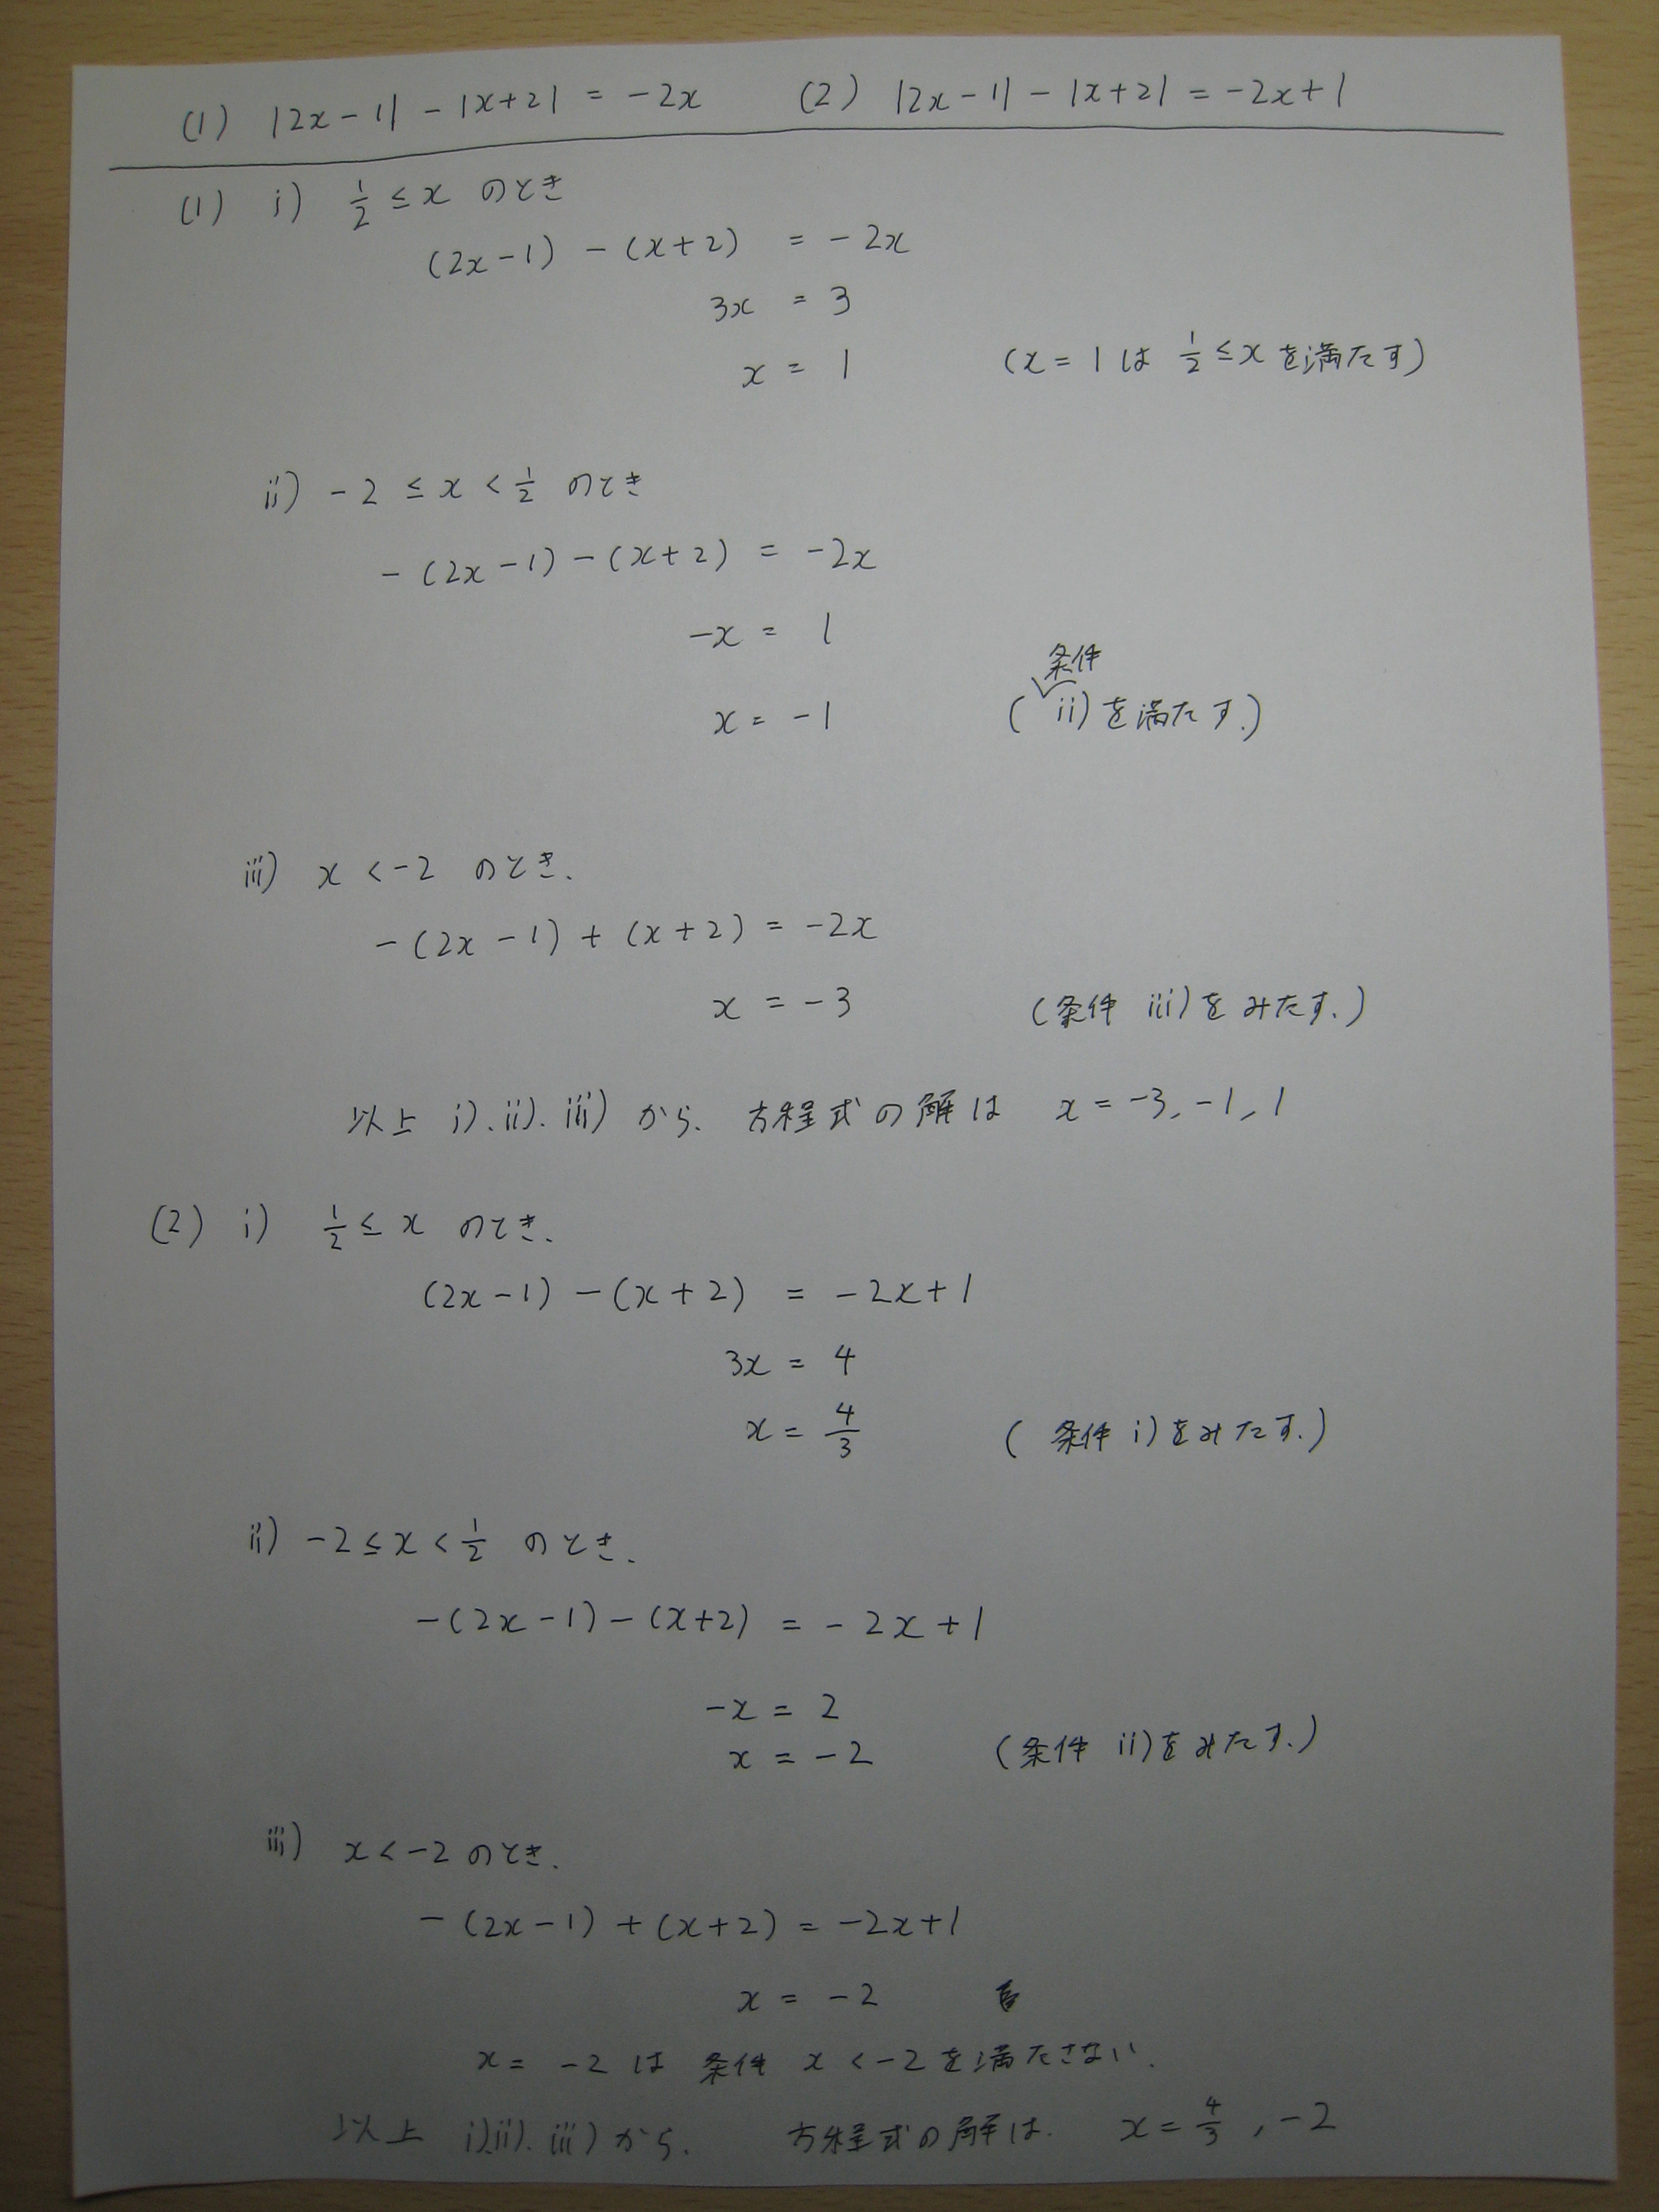 (1) |2x-1| - |x+2| = -2x (2) |2x-1| - |x+2| = -2x+1
(1) i) 1/2 ≤ x のとき
(2x-1) - (x+2) = -2x
3x = 3
x = 1 (x=1は 1/2 ≤ x を満たす)
ii) -2 ≤ x < 1/2 のとき
-(2x-1) - (x+2) = -2x
-x = 1
x = -1 (条件 ii)を満たす.)
iii) x < -2 のとき.
-(2x-1) + (x+2) = -2x
x = -3 (条件 iii)をみたす.)
以上 i).ii).iii) から. 方程式の解は x = -3, -1, 1
(2) i) 1/2 ≤ x のとき.
(2x-1) - (x+2) = -2x+1
3x = 4
x = 4/3 (条件 i)をみたす.)
ii) -2 ≤ x < 1/2 のとき.
-(2x-1) - (x+2) = -2x+1
-x = 2
x = -2 (条件 ii)をみたす.)
iii) x < -2 のとき.
-(2x-1) + (x+2) = -2x+1
x = -2
x = -2 は 条件 x < -2 を満たさない.
以上 i).ii).iii) から. 方程式の解は. x = 4/3, -2